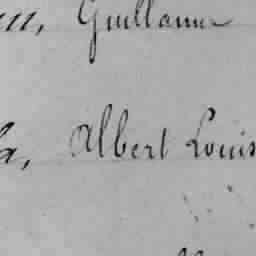 Guillaume
Albert Louis